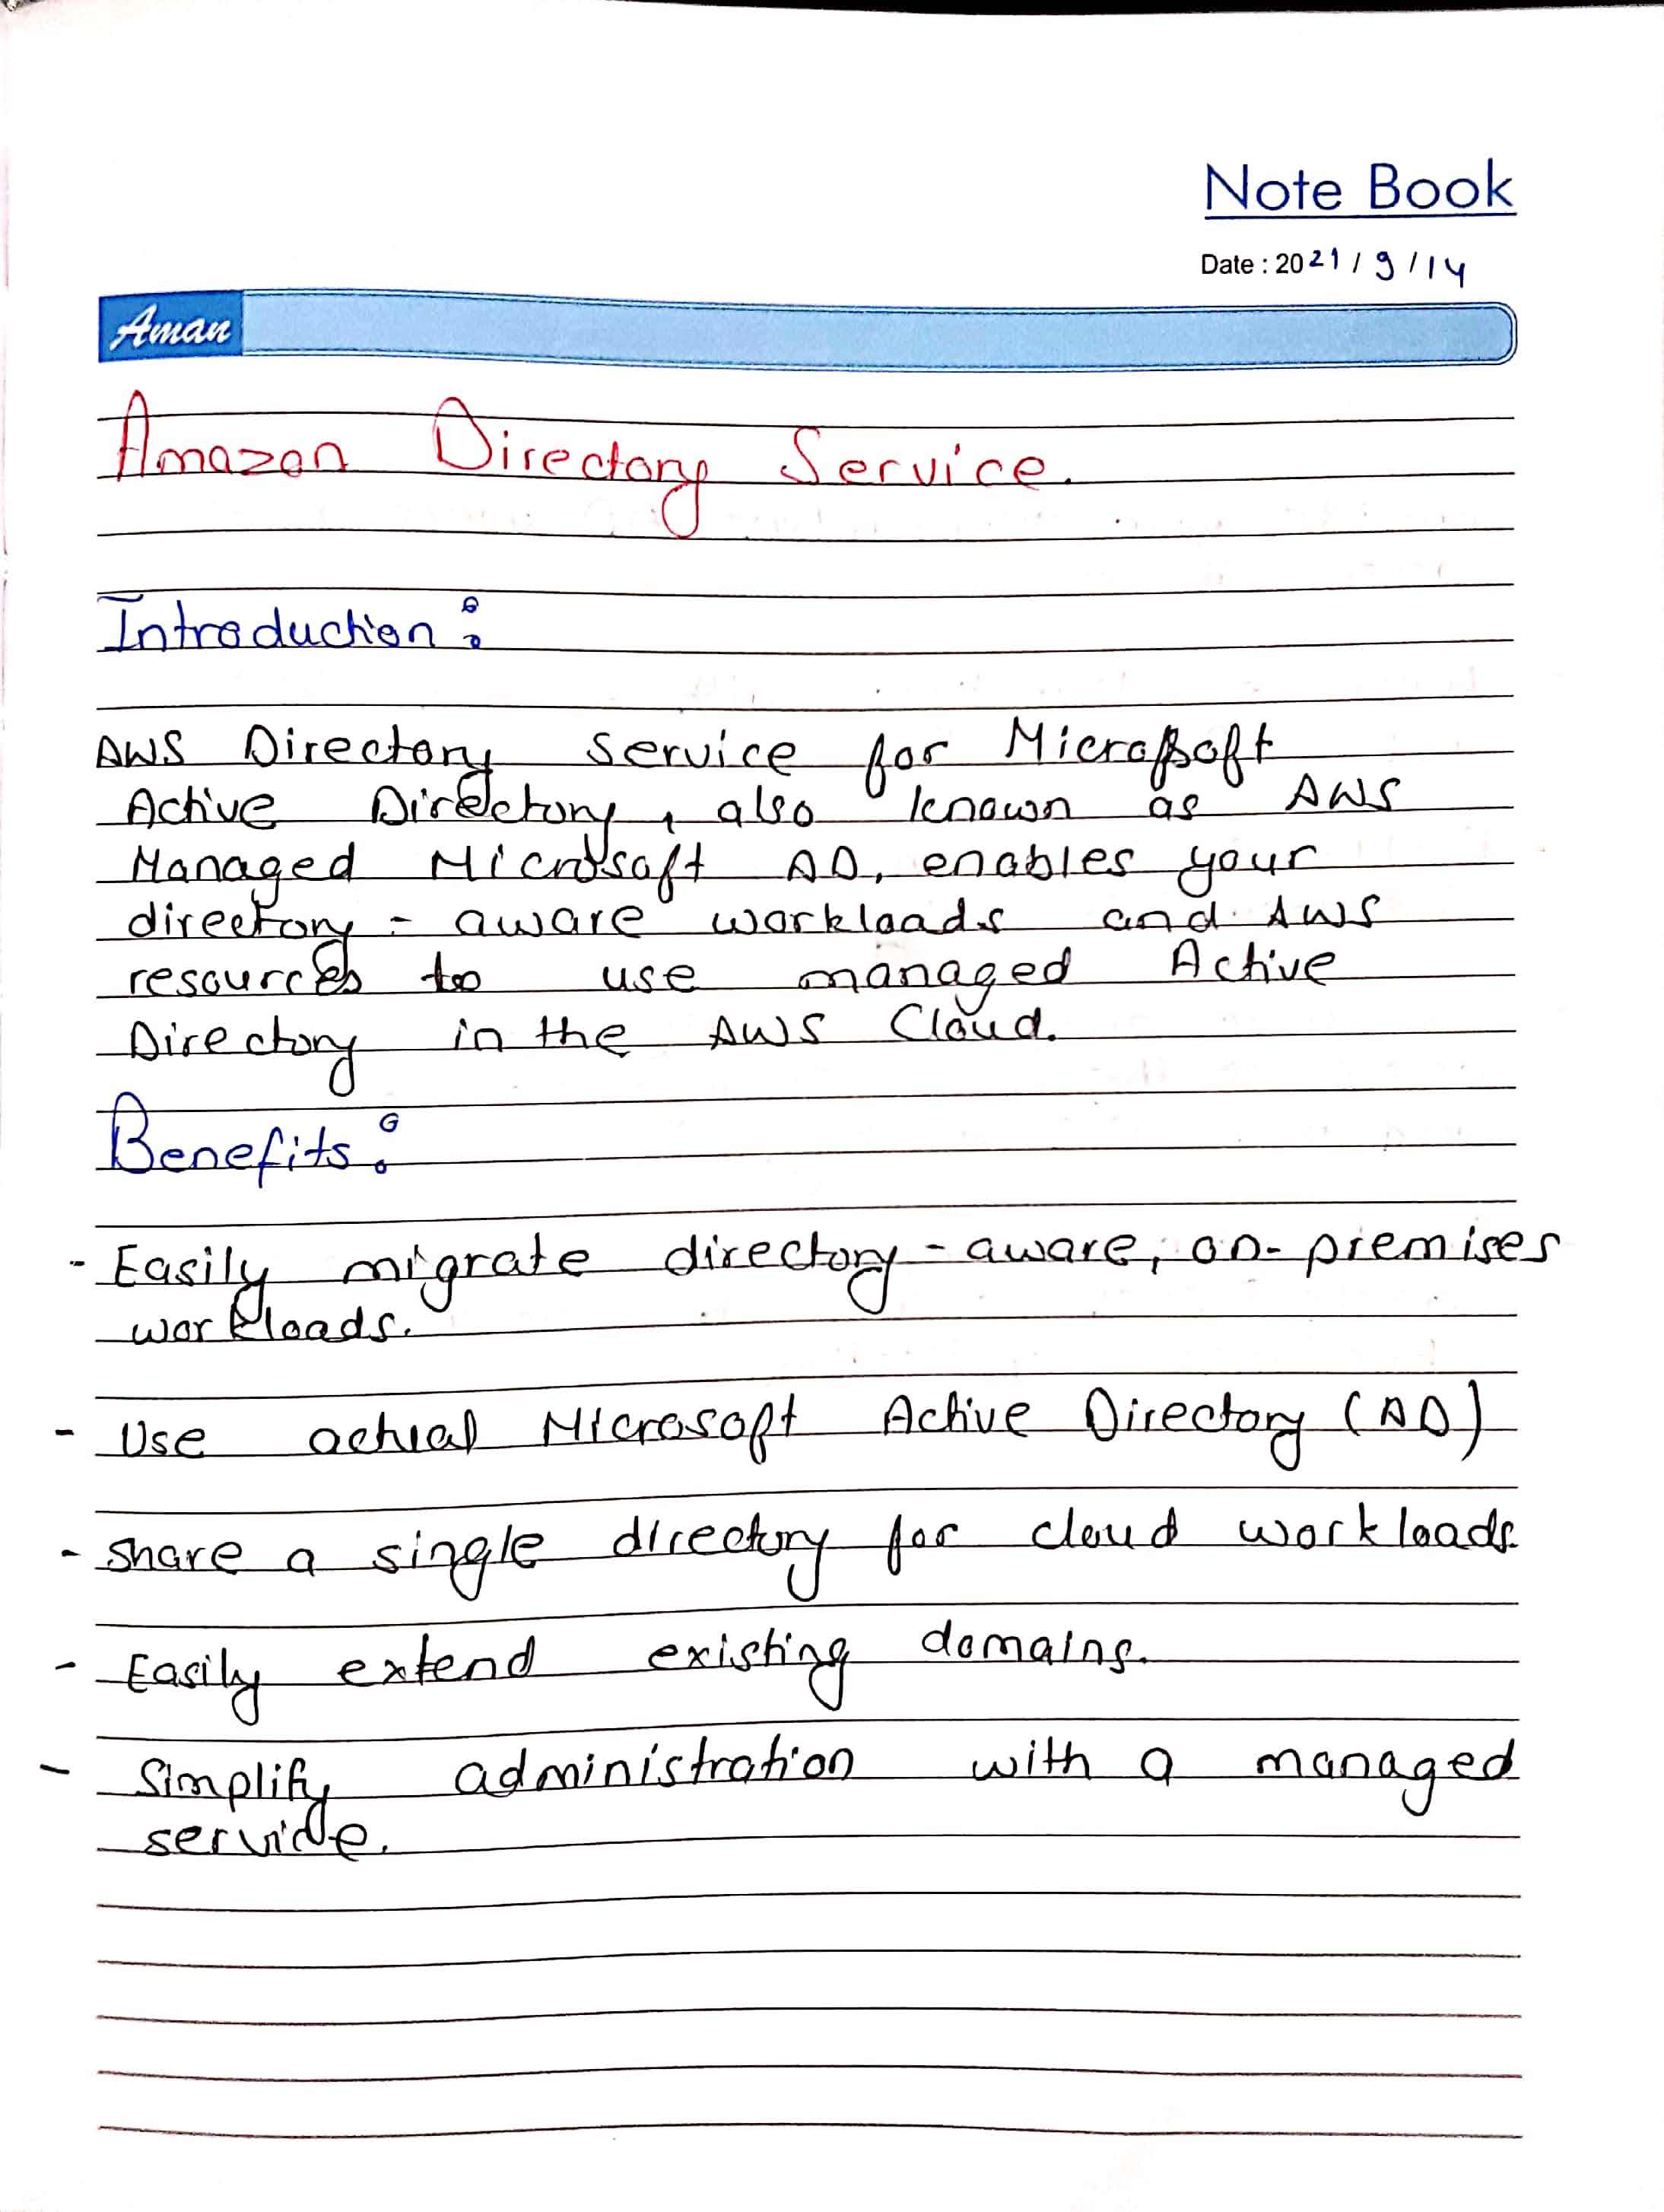 Note Book
Date : 2021 / 9 / 14
Aman
Amazon Directory Service.
Introduction :
AWS Directory Service for Microsoft
Active Directory, also known as AWS
Managed Microsoft AD, enables your
directory - aware workloads and AWS
resources to use managed Active
Directory in the AWS Cloud.
Benefits :
- Easily migrate directory - aware, on- premises
workloads.
- Use actual Microsoft Active Directory (AD)
- Share a single directory for cloud workloads.
- Easily extend existing domains.
- Simplify administration with a managed
service.